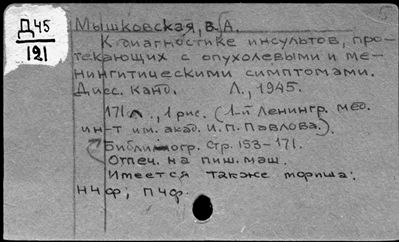 Д45
121
Мышковская, В. А.
К диагностике инсультов, про-
текающих с опухолевыми и ме-
нингитическими симптомами.
Дисс. канд. Л., 1945.
171 л., 1 рис. (1-й Ленингр. мед.
ин-т им. акад. И. П. Павлова.).
Библиогр. стр. 153-171.
Отпеч. на пиш. маш.
Имеется также
НЧФ; ПЧФ.